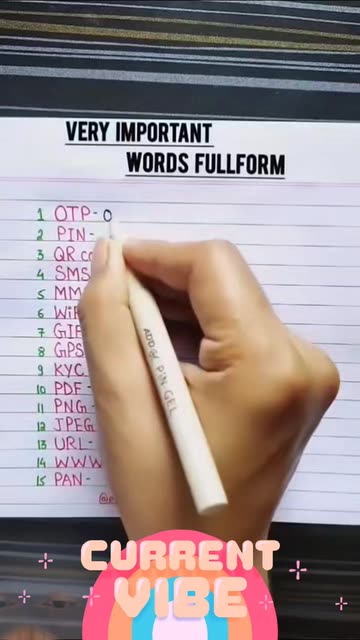 VERY IMPORTANT
WORDS FULLFORM
1 OTP- O
2 PIN-
3 QR co
4 SMS
5 MM
6 WiF
7 GIF
8 GPS
9 KYC
10 PDF-
11 PNG-
12 JPEG
13 URL-
14 WWW
15 PAN-
ADD GEL
PIN GEL
CURRENT
VIBE